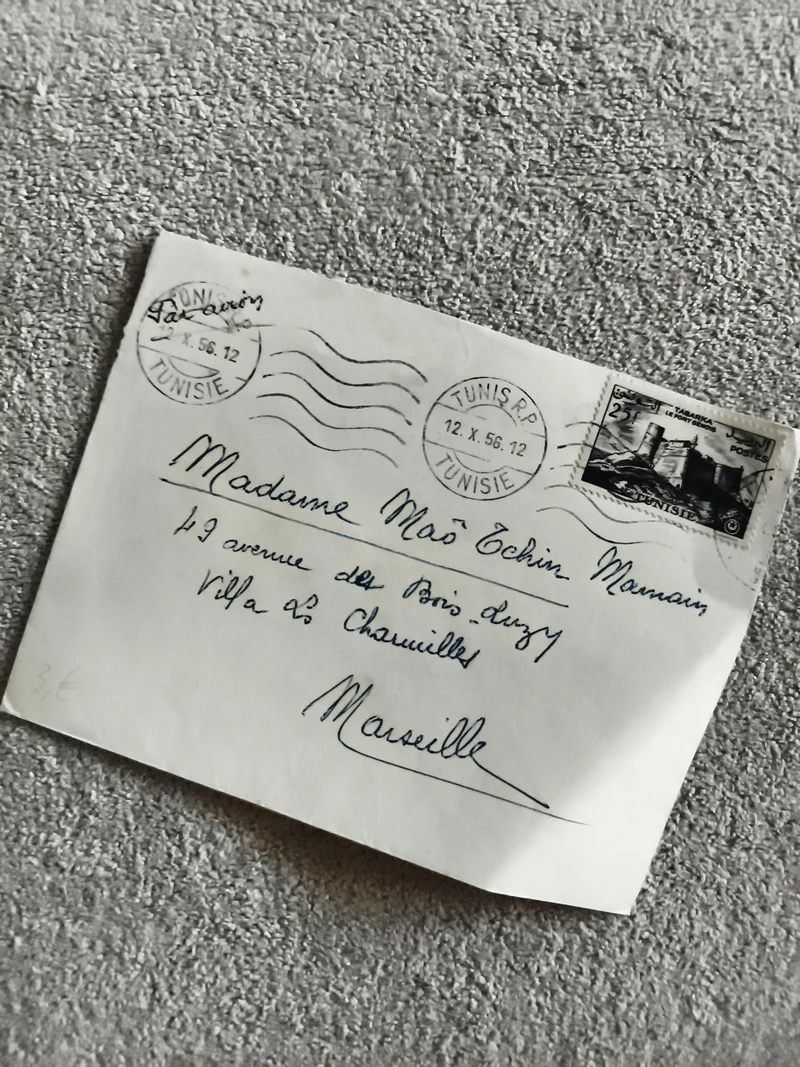 Par avion
TUNIS
12. X. 56. 12
TUNISIE
TUNIS R.P
12. X. 56. 12
TUNISIE
25F
التونسية
TABARKA
LE FORT GENOIS
البريد
POSTES
TUNISIE
Madame Maô Tchin Mamain
49 avenue des Bois-Luzy
Villa Les Charmilles
Marseille
3,€